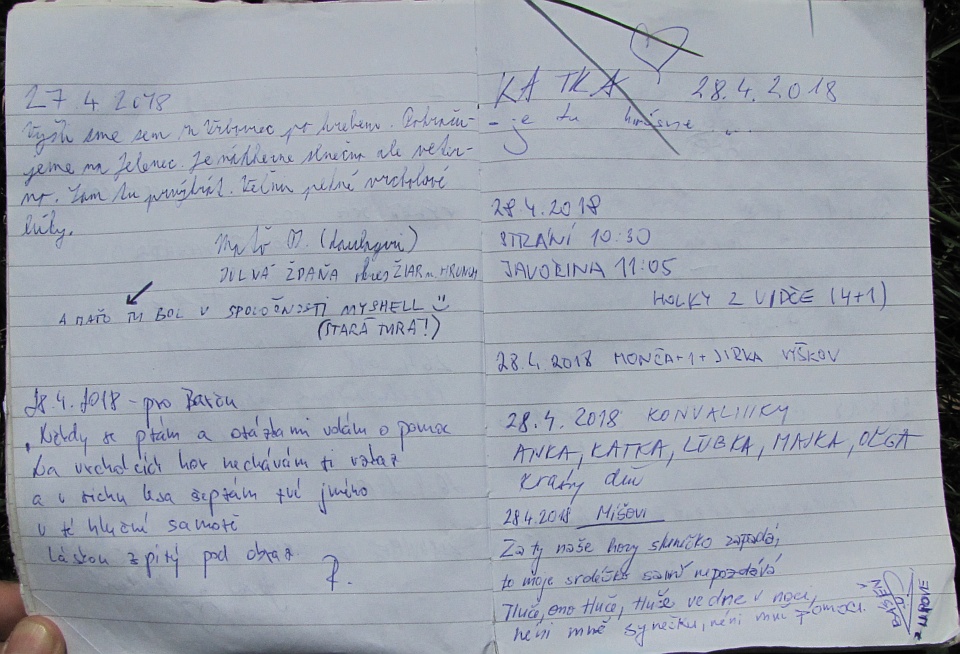 27 4 2018
Vyšli sme sem z Vrbovec po hrebeni. Pokraču-
jeme na Jelenec. Je nádherne slnečno ale veter-
no.
lúky.
JE MÍŇA
A MAŤO TU BOL V SPOLOČNOSTI MYSHELL
(STARÁ TURÁ!)
28.4.2018 - pro Barču
Kdždy se ptám a otázkami volám o pomoc
Na vrcholcích hor nechávám ti vzkaz
a v tichu lesa šeptám tvé jméno
v té hlučné samotě
láskou zpitý pod obraz
P.
KATKA 28.4.2018
- je tu krásne ....
28.4.2018
STRÁNÍ 10:30
JAVOŘINA 11:05
HOLKY Z VIDČE (4+1)
28.4.2018 MONČA+1+JIRKA VYŠKOV
28.4.2018 KONVALINKY
ANKA, KATKA, ĽUBKA, MAJKA, OĽGA
Krásny deň
28.4.2018 Míšovi
Za ty naše hory slunéčko zapadá,
to moje srdéčko samo nepozdává
Tluče, ono tluče, tluče ve dne v noci,
není mně synečku, není mně pomoci.